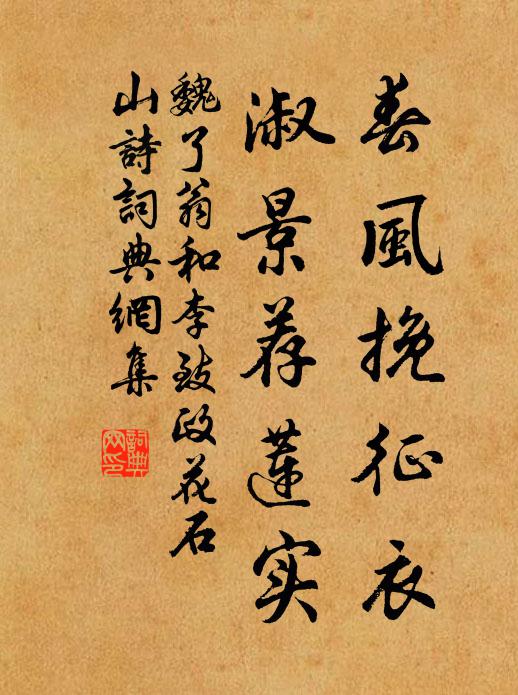 春風挽征衣
淑景荐蓮实
魏了翁和李致政花石
山詩詞典網集
詞典網印